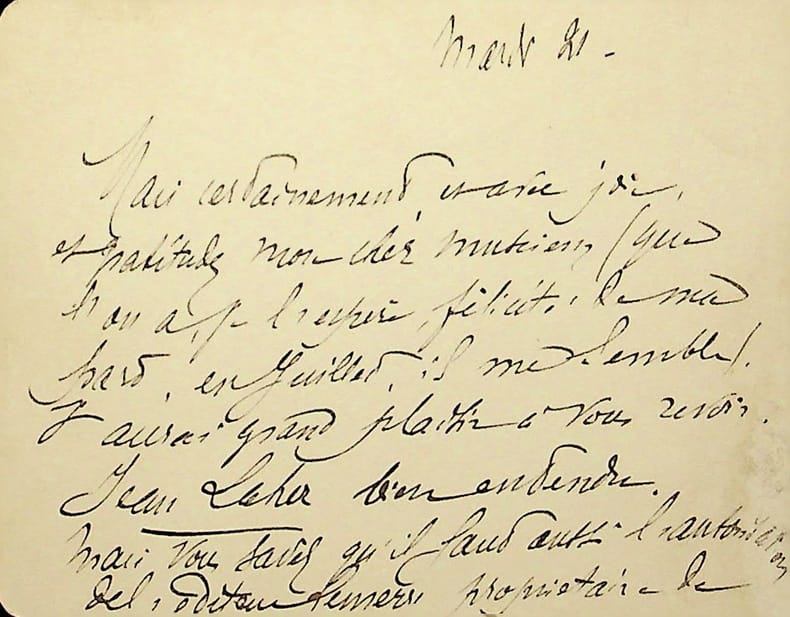 Mardi 21 -
Mais certainement, et avec joie,
et gratitude, mon cher musicien (que
l'on a, je l'espère, félicité de ma
part, en Juillet, il me semble).
J'aurai grand plaisir à vous revoir.
Jean bien entendu.
Mais vous savez qu'il faut aussi l'autorisation
de l'éditeur Lemerre propriétaire de